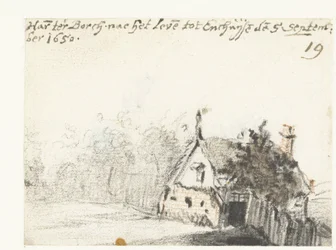 Har̃ ter Borch nae het Leve̅ tot Enchuijse de̅ 5 Septem;
ber 1650.
19